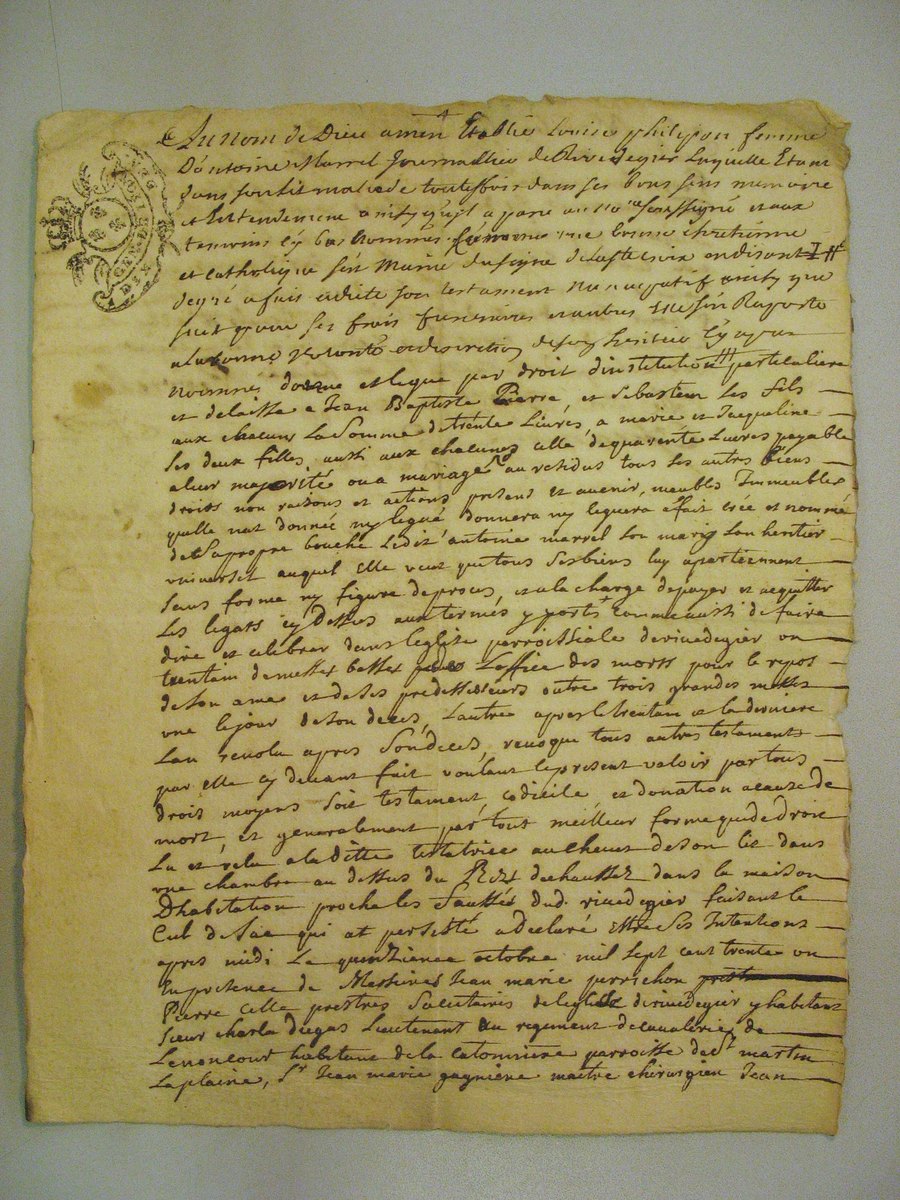 GEN DE LYON
DIX
Au nom de Dieu amen Establie Louise philipon femme
D'antoine Marrel Journallier de Rive degier Laquelle Etant
dans son lit malade touttesfois dans ses bons sens memoire
et Entendement ainsy quil a paru au no.re soussigné et aux
temoins cy bas Nommés, comme une bonne chretienne
et Catholique s'est Munie du signe de la ste croix en disant I H
degré a fait et dicté son testament Nuncupatif ainsy que
suit quand ses frais funeraires et autres Elle s'en Raporte
a la bonne volonté et discretion de son heritier cy apres
nommé, donne et legue par droit d'institution particuliere
et delaisse a Jean Baptiste Pierre, et Sebastien ses fils
aux chacuns La Somme de trente Livres, a marie et Jacqueline
ses deux filles, aussi aux chacunes celle de quarente Livres payable
a leur majorité ou a mariage, au residus tous ses autres biens
droits noms raisons et actions present et avenir, meubles Immeubles
quelle nat donnée ny legué, donnera ny leguera a fait crée et nommé
de sa propre bouche Ledit antoine marrel son mary son heritier
universel auquel Elle veut que tous ses biens luy apartiennent
sans forme ny figure de proces, et a la charge de payer et acquitter
Les legats cy dessus aux termes y portés comme aussi de faire
dire et celebrer dans l'eglise parroissiale de rivedegier un
trentain de messes basses Loffice des morts pour le repos
de son ame et de ses predessesseurs outre trois grandes messes
une le jour de son deces, Lautre apres le trentain et la derniere
Lan revolu apres son deces, revoque tous autres testaments
par elle cy devant fait voulant le present valoir par tous
droit moyens soit testament, codicile et donation a cause de
mort, et generalement par tout meilleur forme que de droit
Lu et relu a la ditte testatrice au chevet de son lit dans
une chambre au dessus du Rez de chaussez dans la maison
D'habitation proche les faussés dud. rivedegier faisant le
Cul de sac qui at persisté a declaré Estre ses Intentions
apres midi Le quinzieme octobre mil sept cent trente un
En presence de Messires Jean marie perrichon
Pierre Colle prestres Societaires de leglise de rivedegier y habitant
sieur charle dugas Lieutenant au regiment de cavalerie de
Lenoncour habitant de la Catonniere parroisse de St martin
Laplaine, Sr Jean marie gagniere maitre chirurgien Jean